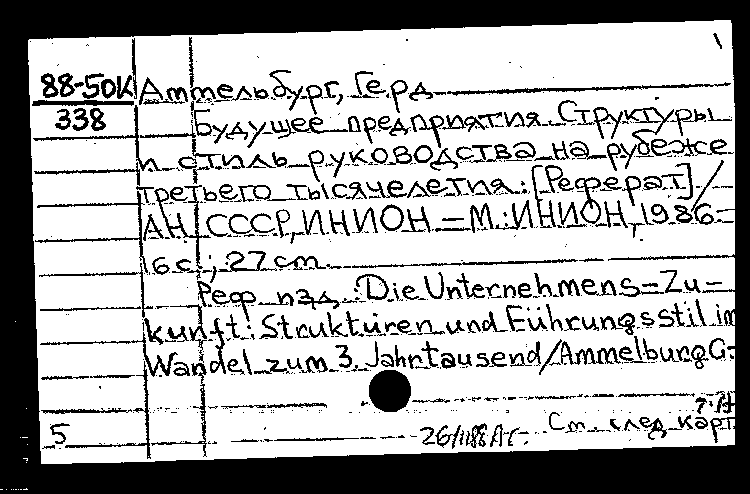 88-50К Аммельбург, Герд
338 Будущее предприятия. Структуры
и стиль руководства на рубеже
третьего тысячелетия: [Реферат] /
АН СССР, ИНИОН. – М.: ИНИОН, 1986. –
16 с.; 27 cm.
Реф. изд.: Die Unternehmens-Zu-
kunft: Strukturen und Führungsstil im
Wandel zum 3. Jahrtausend / Ammelburg G. –
5 См. след. карт